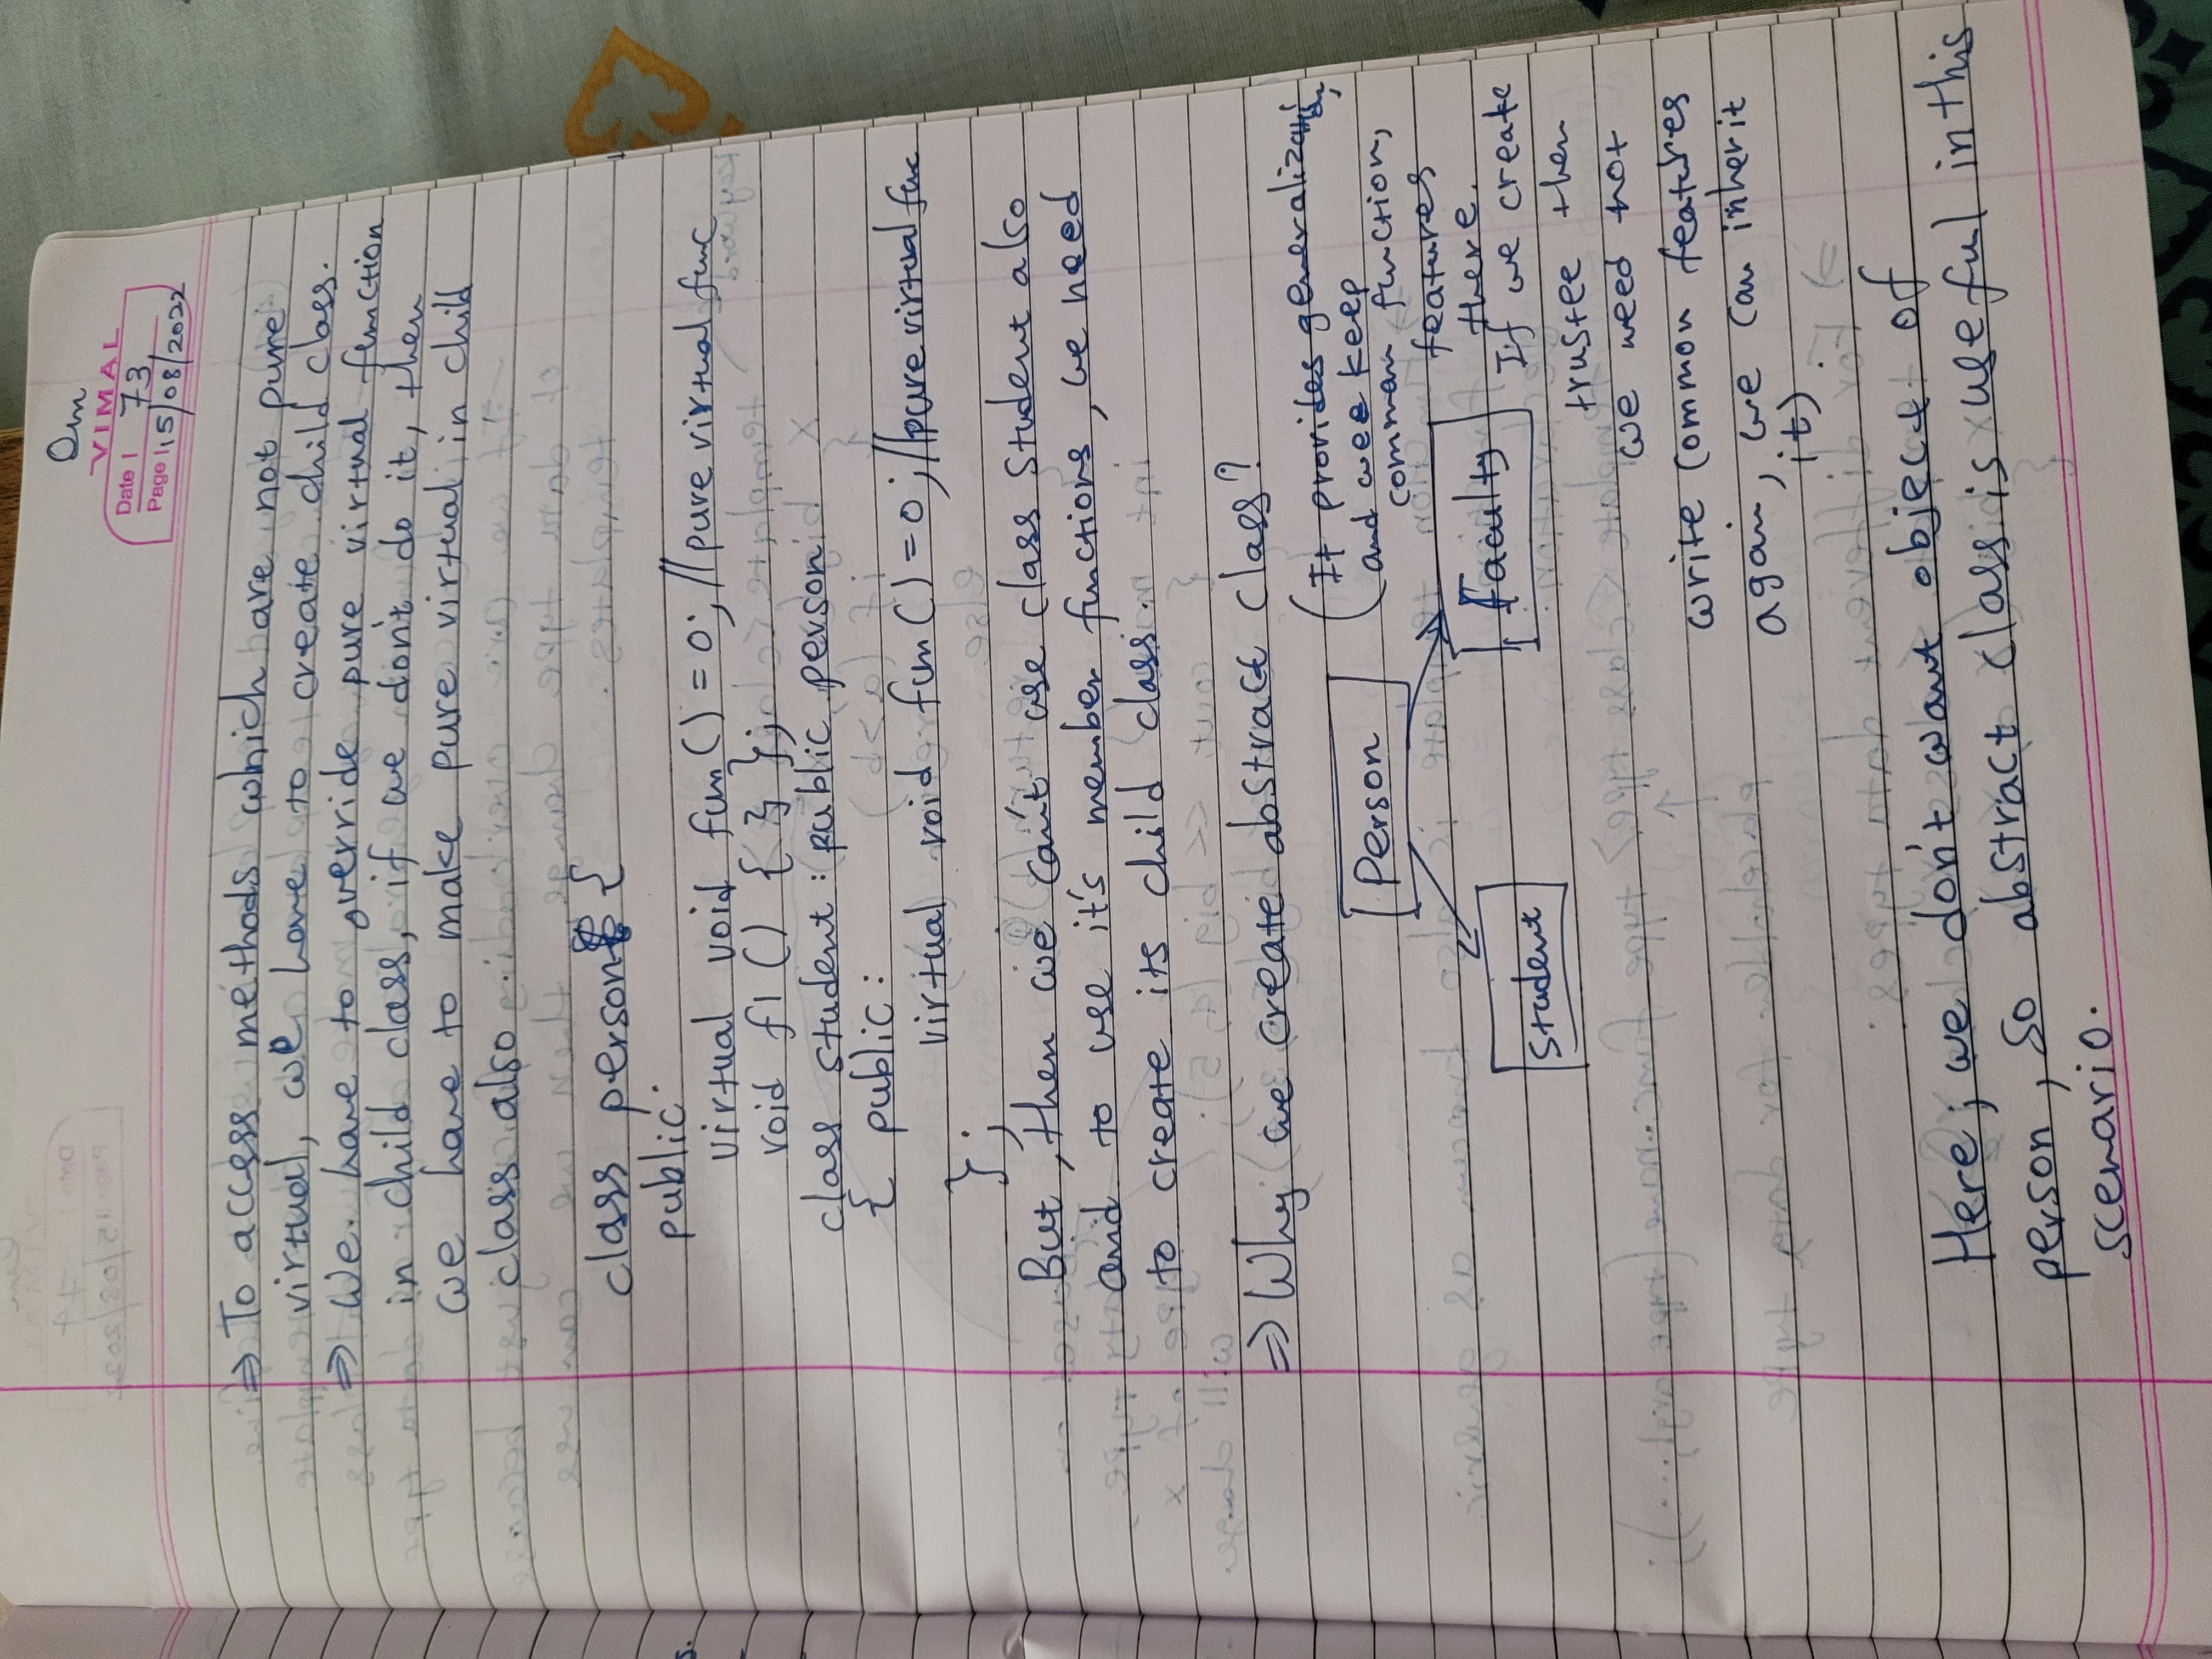 Om
VIMAL
Date | 73
Page | 15/08/2022
⇒ To access methods which are not pure
virtual, we have to create child class.
⇒ We have to override pure virtual function
in child class, if we don't do it, then
we have to make pure virtual in child
class also.
class person {
public:
virtual void fun() = 0; //pure virtual func
void f1() { } };
class student : public person
{ public:
virtual void fun() = 0; //pure virtual func
};
But, then we can't use class student also
and to use it's member functions, we need
to create its child class.
⇒ Why we create abstract class?
Person
(It provides generalization,
and wee keep
common function,
features
there.
Student
Faculty
If we create
trustee then
we need not
write common features
again, we can inherit
it)
Here, we don't want object of
person, so abstract class is useful in this
scenario.